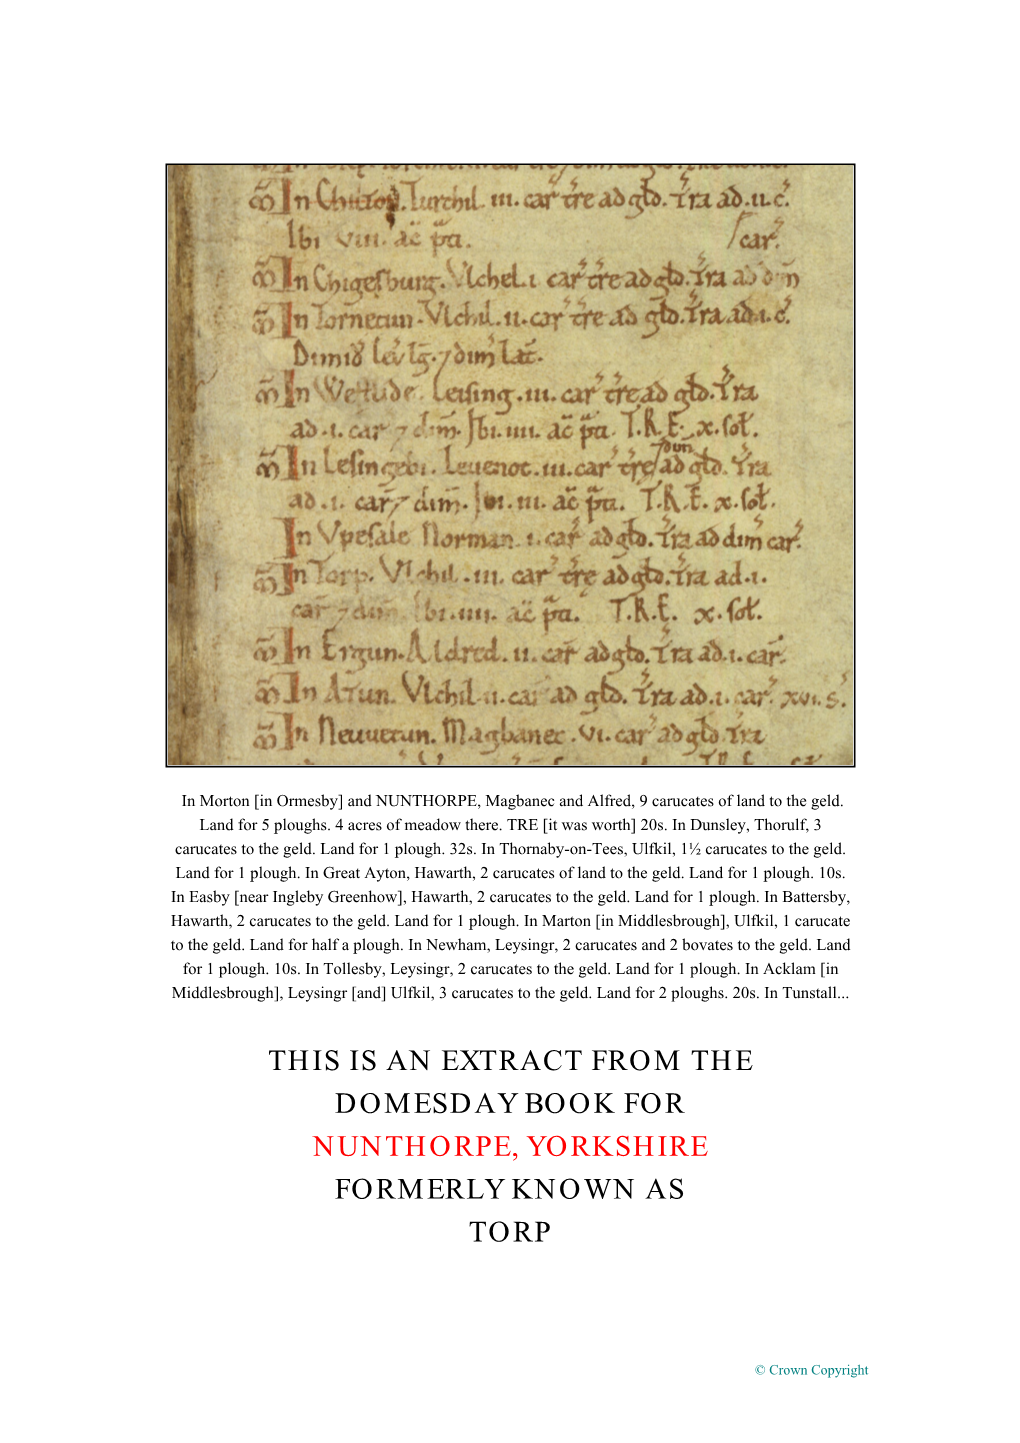 ᷓ In Chilton. Turchil. iii. car̃ tr̃e ad gld. Tr̃a ad .ii. c̃.
Ibi viii. ac̃ p̃ti. car̃.
In Chigesburg. Vlchel. i car̃ tr̃e ad gld. Tr̃a ad dim̃
In Tornetun. Vlchil. ii. car̃ tr̃e ad gld. Tr̃a ad .i. c̃.
Dimid leu̔ lg̃. ⁊ dim̃ lat̃.
In Leising. iii. car̃ tr̃e ad gld. Tr̃a
ad .i. car̃ ⁊ dim̃. Ibi. iiii. ac̃ p̃ti. T.R.E. x. sol̃.
In Lesingebi. Leuenot. iii. car̃ tr̃e ⁊ dim̃ ad gld. Tr̃a
ad .i. car̃ ⁊ dim̃. Ibi. iii. ac̃ p̃ti. T.R.E. x. sol̃.
In Vpesale Norman. i. car̃ ad gld. Tr̃a ad dim̃ car̃.
In Torp. Vlchil. iii. car̃ tr̃e ad gld. Tr̃a ad .i.
car̃ ⁊ dim̃. Ibi. iiii. ac̃ p̃ti. T.R.E. x. sol̃.
In Ergun. Aldred. ii. car̃ ad gld. Tr̃a ad .i. car̃.
In Atun. Vlchil. ii. car̃ ad gld. Tr̃a ad .i. car̃. xvi. s̃.
In Neuuetun. Magbanec. vi. car̃ ad gld. Tr̃a
In Morton [in Ormesby] and NUNTHORPE, Magbanec and Alfred, 9 carucates of land to the geld.
Land for 5 ploughs. 4 acres of meadow there. TRE [it was worth] 20s. In Dunsley, Thorulf, 3
carucates to the geld. Land for 1 plough. 32s. In Thornaby-on-Tees, Ulfkil, 1½ carucates to the geld.
Land for 1 plough. In Great Ayton, Hawarth, 2 carucates of land to the geld. Land for 1 plough. 10s.
In Easby [near Ingleby Greenhow], Hawarth, 2 carucates to the geld. Land for 1 plough. In Battersby,
Hawarth, 2 carucates to the geld. Land for 1 plough. In Marton [in Middlesbrough], Ulfkil, 1 carucate
to the geld. Land for half a plough. In Newham, Leysingr, 2 carucates and 2 bovates to the geld. Land
for 1 plough. 10s. In Tollesby, Leysingr, 2 carucates to the geld. Land for 1 plough. In Acklam [in
Middlesbrough], Leysingr [and] Ulfkil, 3 carucates to the geld. Land for 2 ploughs. 20s. In Tunstall...
THIS IS AN EXTRACT FROM THE
DOMESDAY BOOK FOR
NUNTHORPE, YORKSHIRE
FORMERLY KNOWN AS
TORP
© Crown Copyright